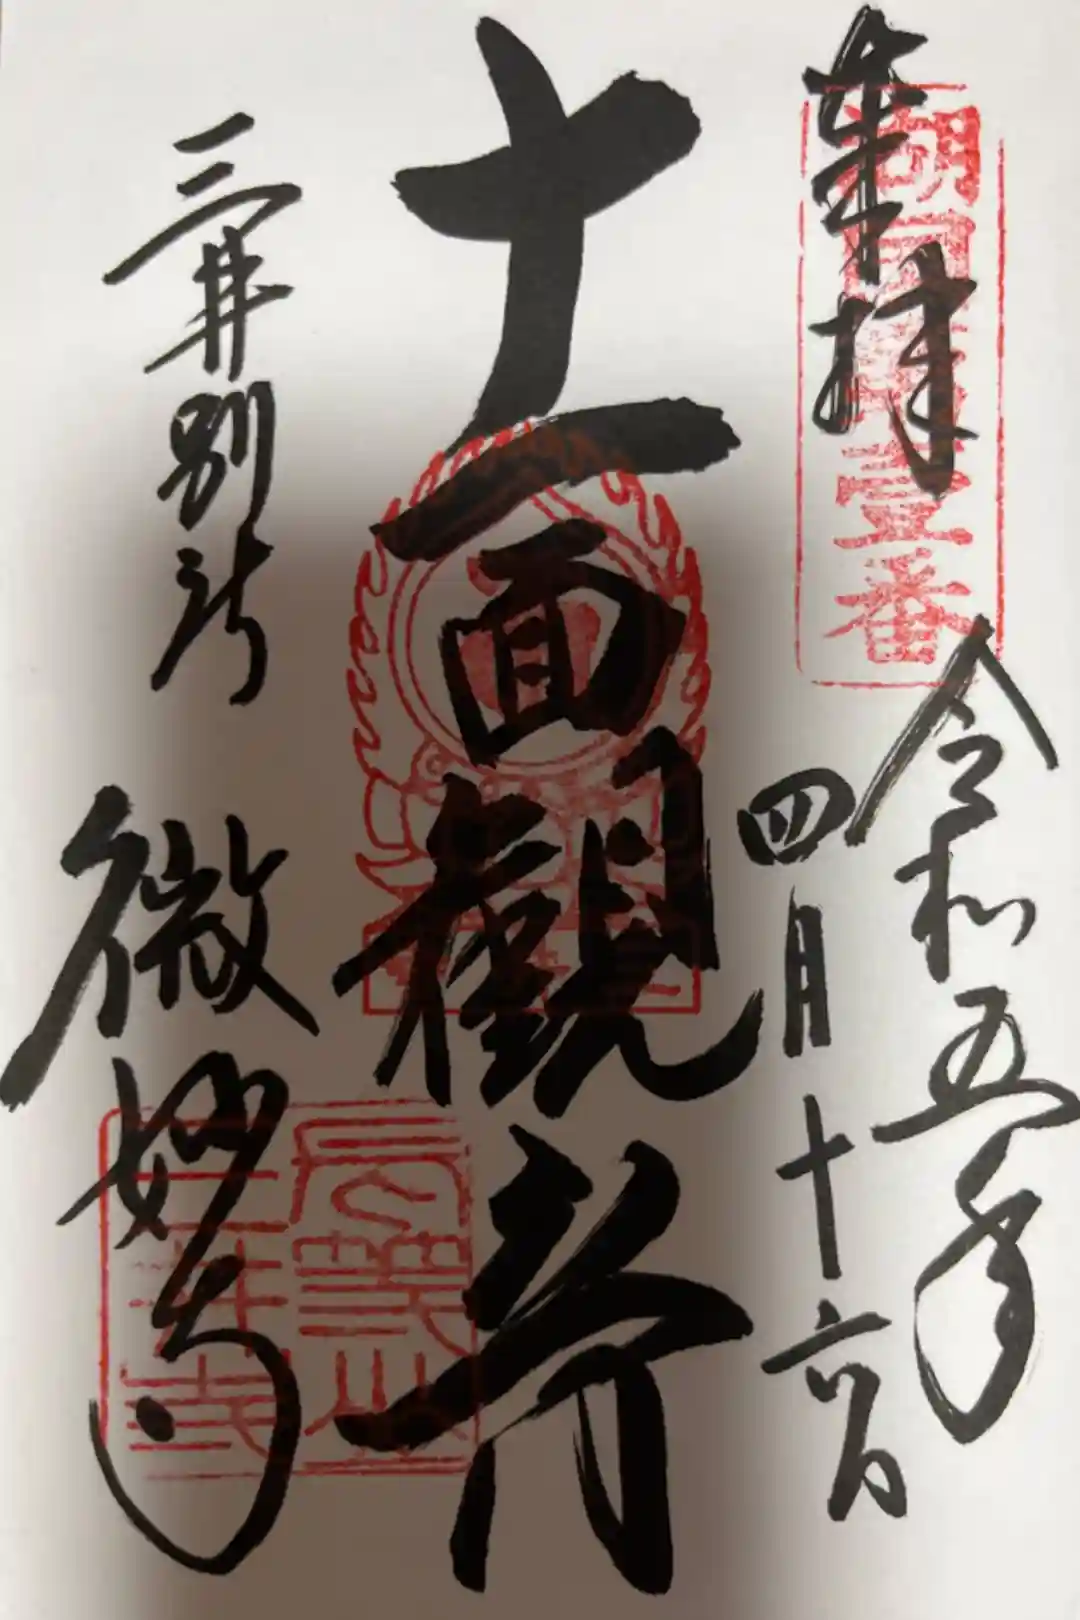 奉拝
湖国 壹番
令和五年
四月十六日
十一面観音
三井別所
微妙寺
長等山
三井寺